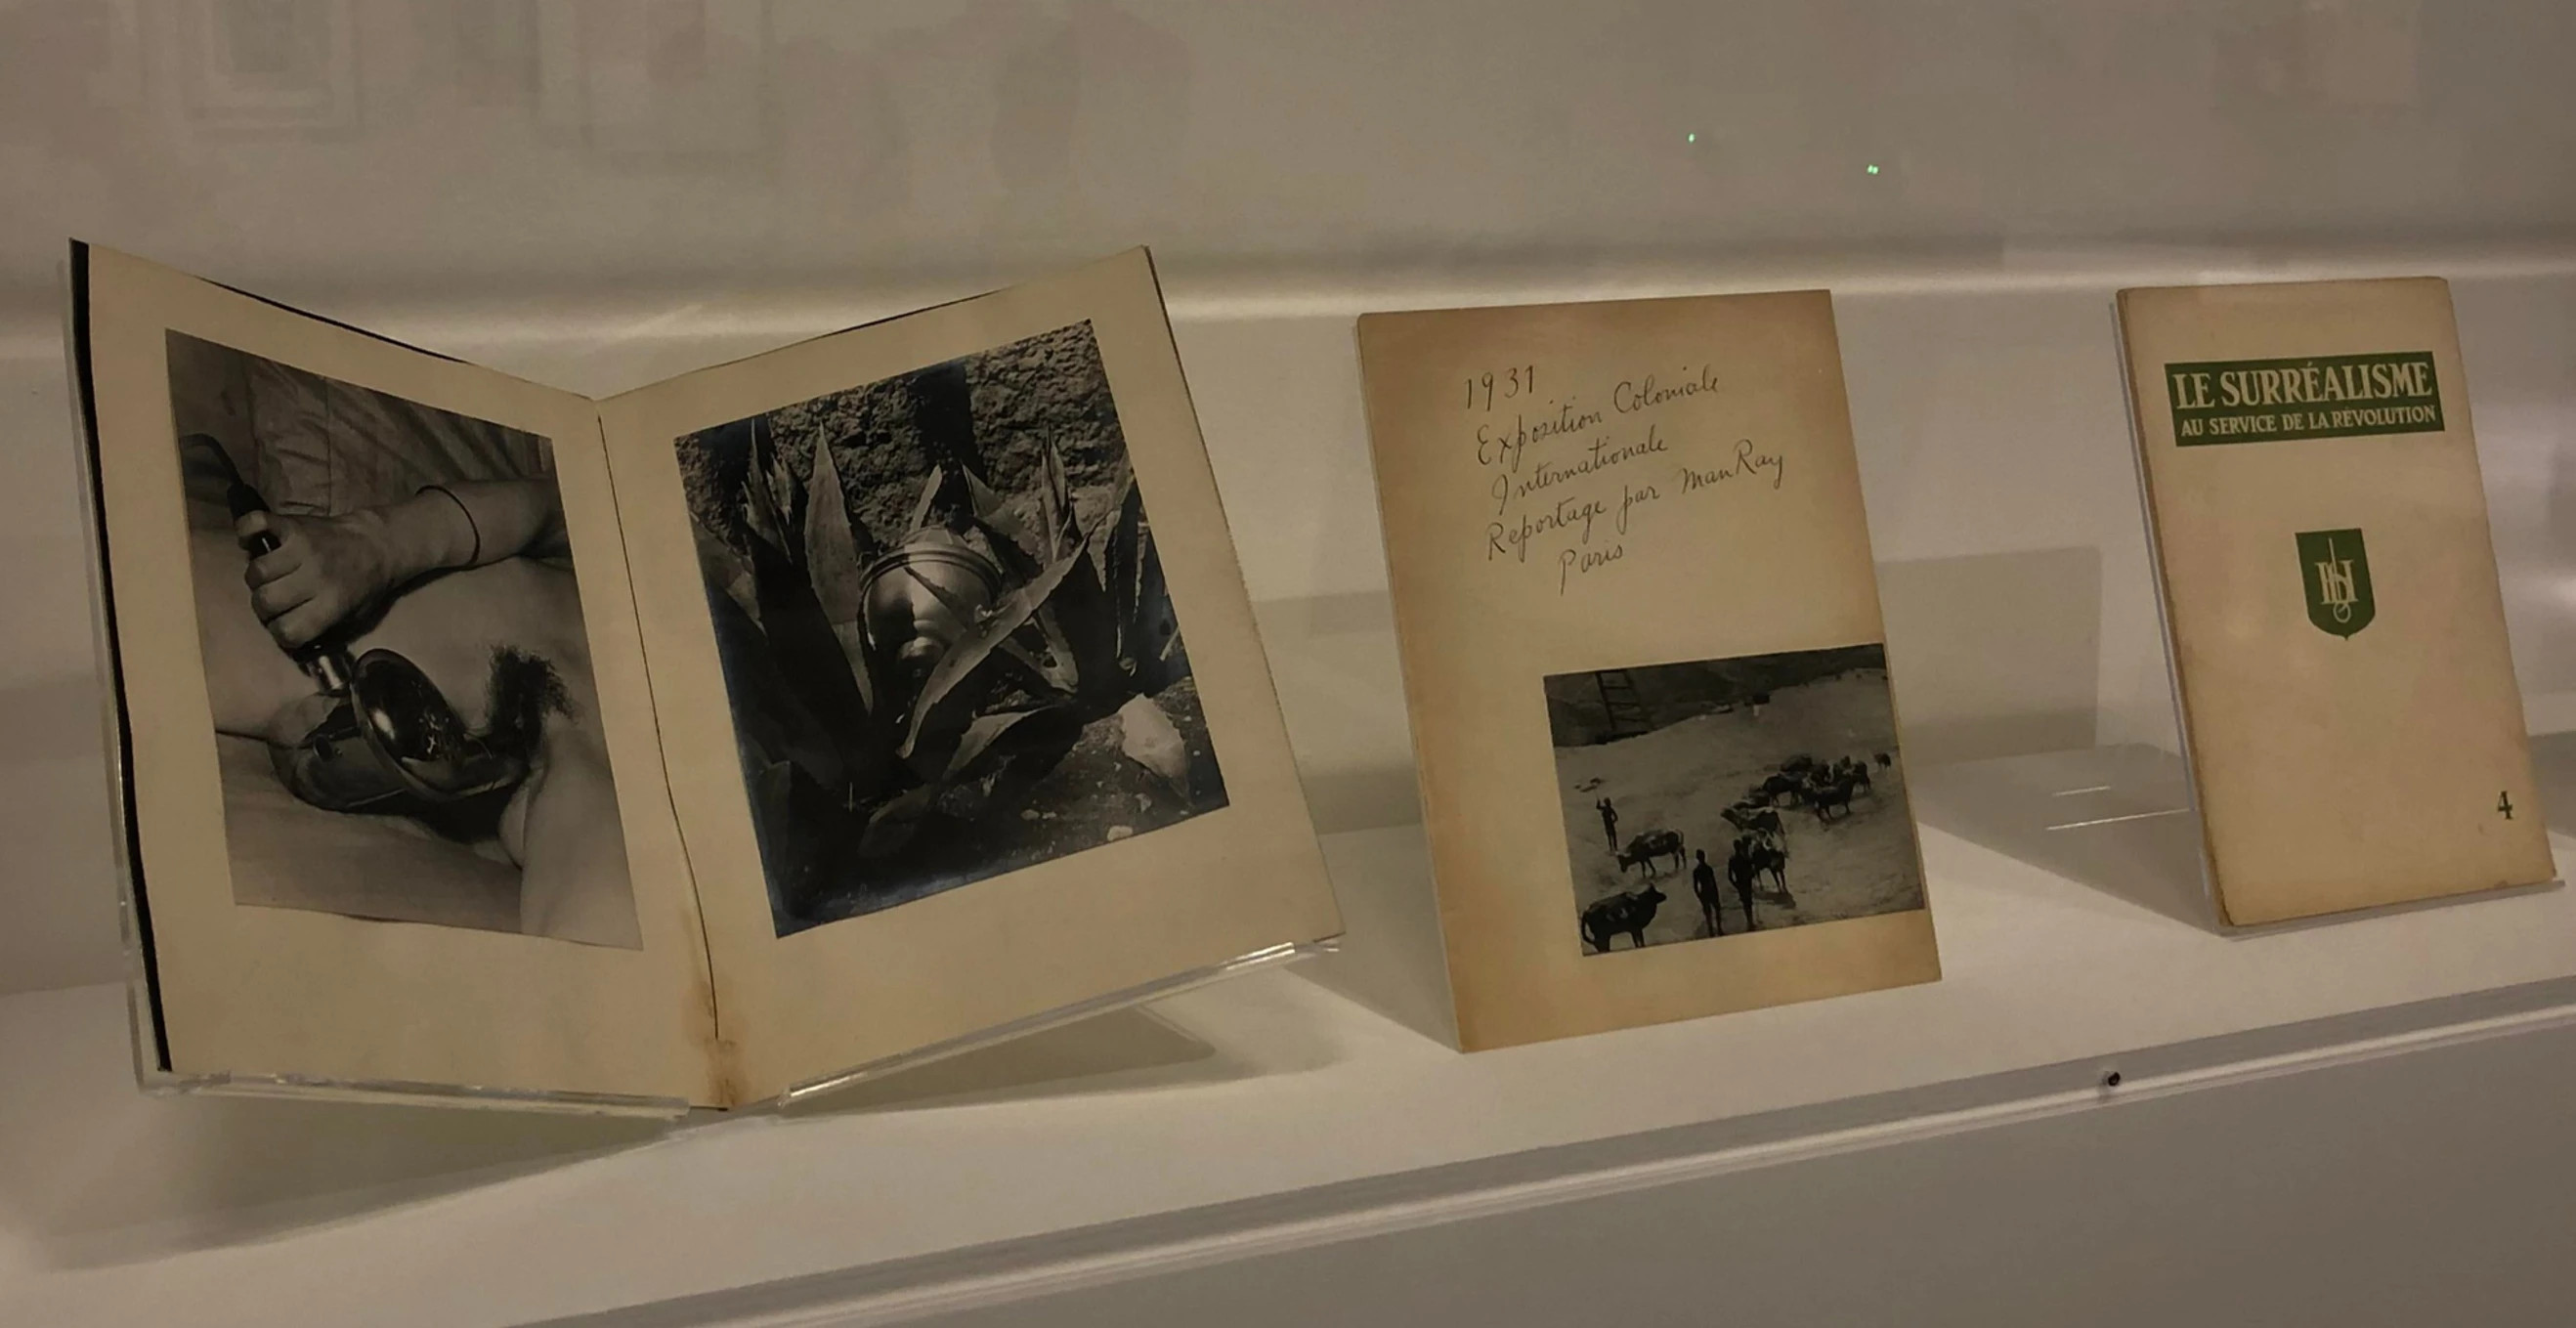 1931
Exposition Coloniale
Internationale
Reportage par Man Ray
Paris
LE SURRÉALISME
AU SERVICE DE LA RÉVOLUTION
4